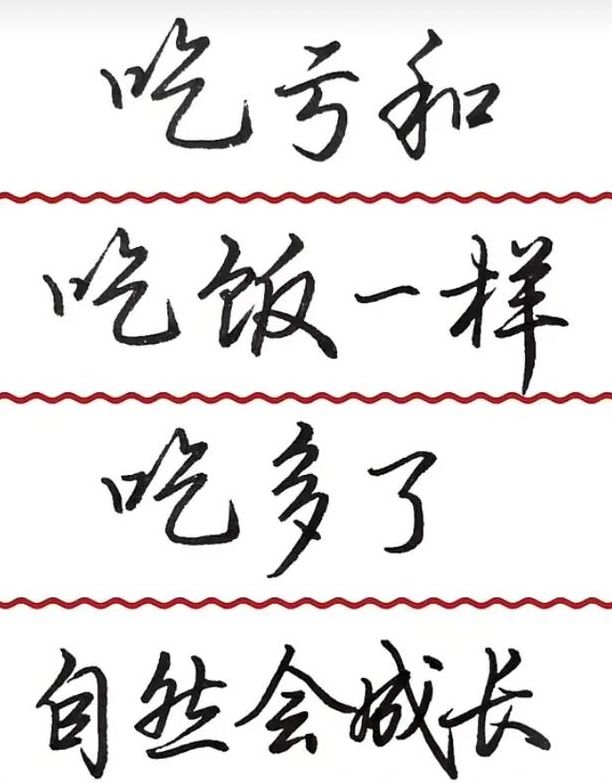 吃亏和
吃饭一样
吃多了
自然会成长